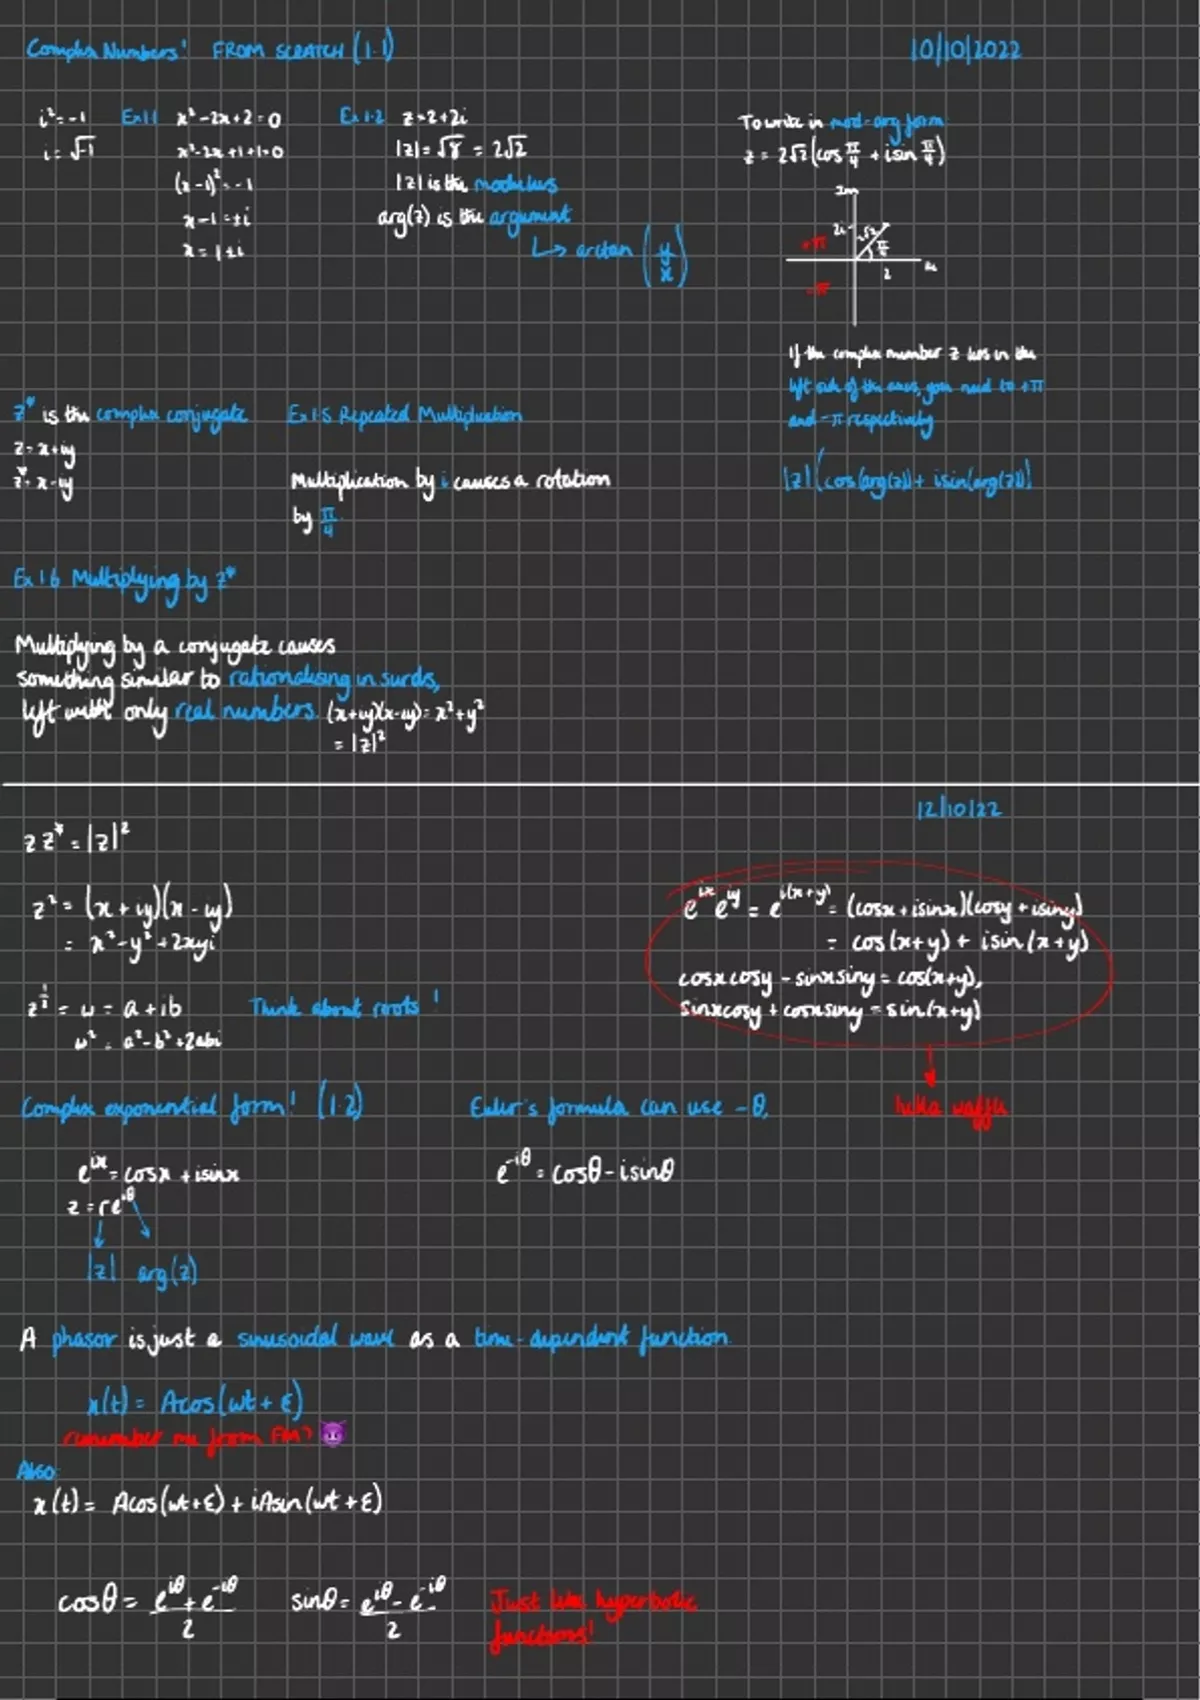 Complex Numbers! FROM SCRATCH (1.1)
10/10/2022
i² = -1
i = √-1
Ex 1.1 x² - 2x + 2 = 0
x² - 2x + 1 + 1 = 0
(x - 1)² = -1
x - 1 = ±i
x = 1 ± i
Ex 1.2 z = 2 + 2i
|z| = √8 = 2√2
|z| is the modulus
arg(z) is the argument
↳ arctan (y/x)
To write in mod-arg form
z = 2√2(cos π/4 + isin π/4)
Im
2i
2√2
π/4
+π
2
Re
-π
If the complex number z lies in the
left side of the axes, you need to +π
and -π respectively
|z|(cos(arg(z)) + isin(arg(z)))
z* is the complex conjugate
z = x + iy
z* = x - iy
Ex 1.5 Repeated Multiplication
Multiplication by i causes a rotation
by π/4.
Ex 1.6 Multiplying by z*
Multiplying by a conjugate causes
something similar to rationalising in surds,
left with only real numbers. (x+iy)(x-iy) = x² + y²
= |z|²
12/10/22
zz* = |z|²
z² = (x + iy)(x - iy)
= x² - y² + 2xyi
z^½ = w = a + ib
w² = a² - b² + 2abi
Think about roots!
e^ix e^iy = e^i(x+y) = (cosx + isinx)(cosy + isiny)
= cos(x+y) + isin(x+y)
cosxcosy - sinxsiny = cos(x+y),
sinxcosy + cosxsiny = sin(x+y)
Complex exponential form! (1.2)
e^ix = cosx + isinx
z = re^iθ
|z| arg(z)
Euler's formula can use -θ.
e^-iθ = cosθ - isinθ
A phasor is just a sinusoidal wave as a time-dependent function.
x(t) = Acos(wt + ε)
remember me from FM? 😈
Also:
x(t) = Acos(wt + ε) + iAsin(wt + ε)
cosθ = (e^iθ + e^-iθ)/2
sinθ = (e^iθ - e^-iθ)/2
Just like hyperbolic
functions!